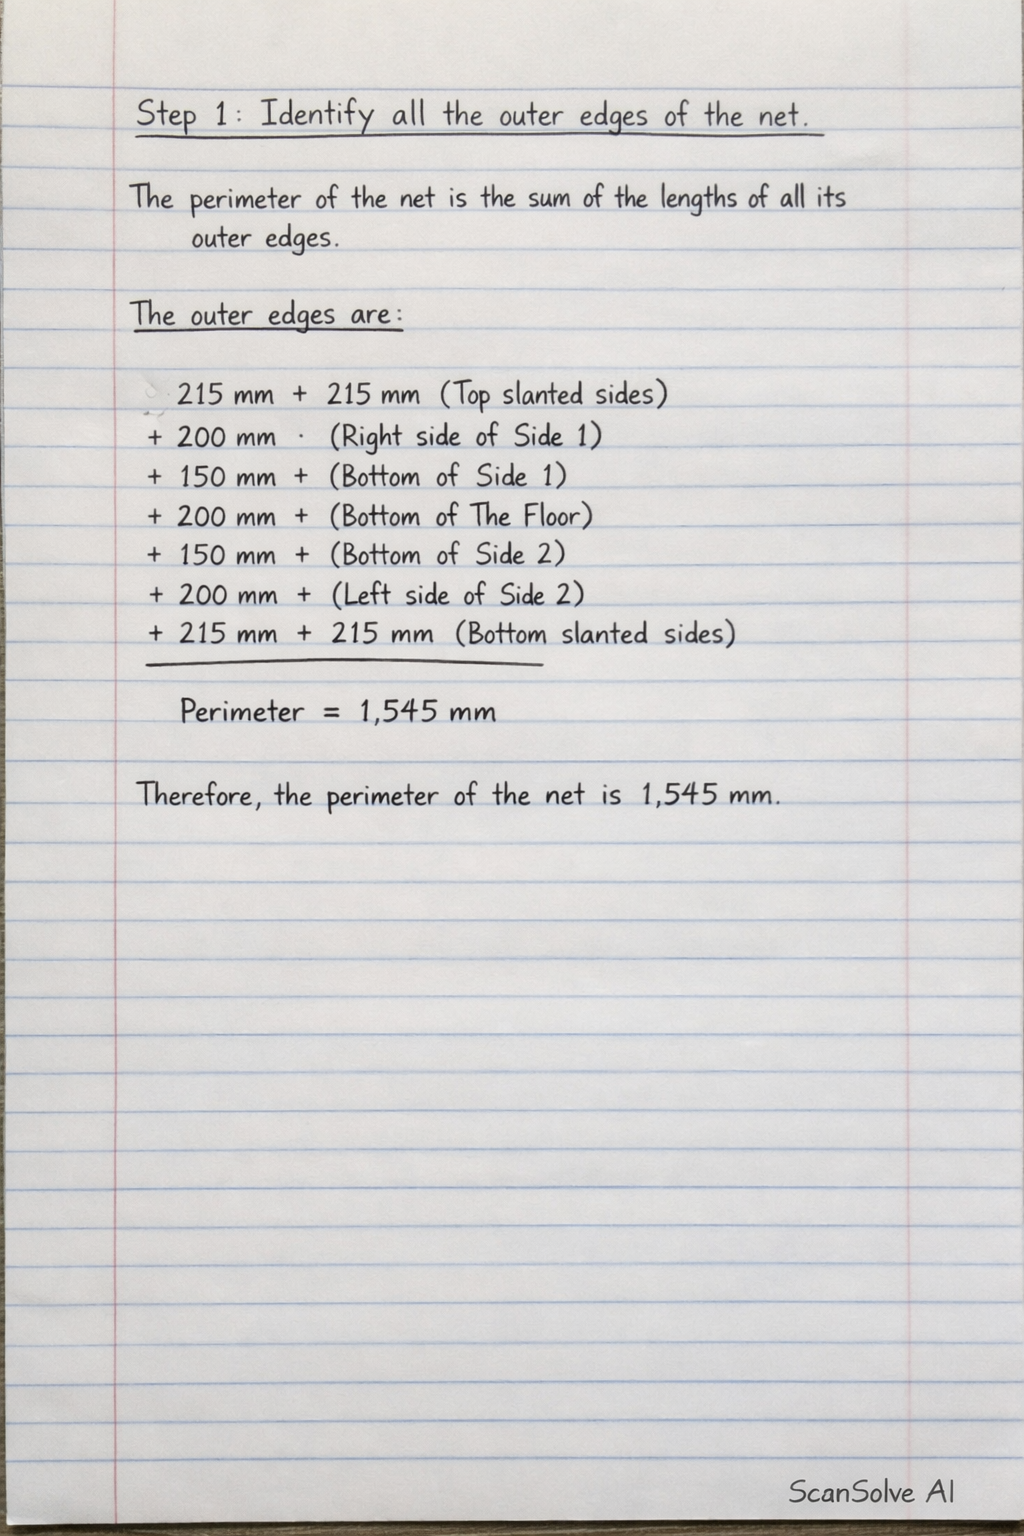 Step 1: Identify all the outer edges of the net.
The perimeter of the net is the sum of the lengths of all its
outer edges.
The outer edges are:
215 mm + 215 mm (Top slanted sides)
+ 200 mm · (Right side of Side 1)
+ 150 mm + (Bottom of Side 1)
+ 200 mm + (Bottom of The Floor)
+ 150 mm + (Bottom of Side 2)
+ 200 mm + (Left side of Side 2)
+ 215 mm + 215 mm (Bottom slanted sides)
Perimeter = 1,545 mm
Therefore, the perimeter of the net is 1,545 mm.
ScanSolve AI